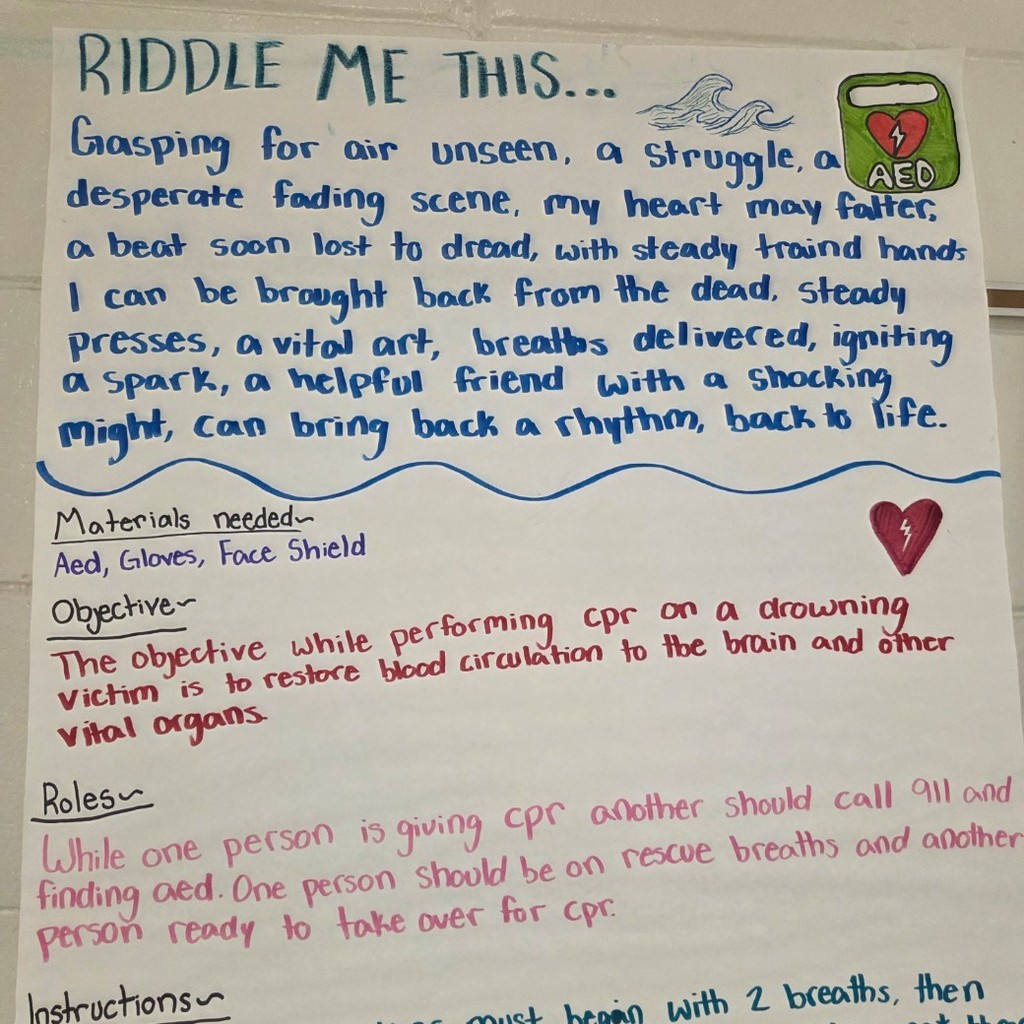 RIDDLE ME THIS...
Gasping for air unseen, a struggle, a
AED
desperate fading scene, my heart may falter,
a beat soon lost to dread, with steady traind hands
I can be brought back from the dead, steady
presses, a vital art, breaths delivered, igniting
a spark, a helpful friend with a shocking
might, can bring back a rhythm, back to life.
Materials needed~
Aed, Gloves, Face Shield
Objective~
The objective while performing cpr on a drowning
victim is to restore blood circulation to the brain and other
vital organs.
Roles~
While one person is giving cpr another should call 911 and
finding aed. One person should be on rescue breaths and another
person ready to take over for cpr.
Instructions~
must begin with 2 breaths, then